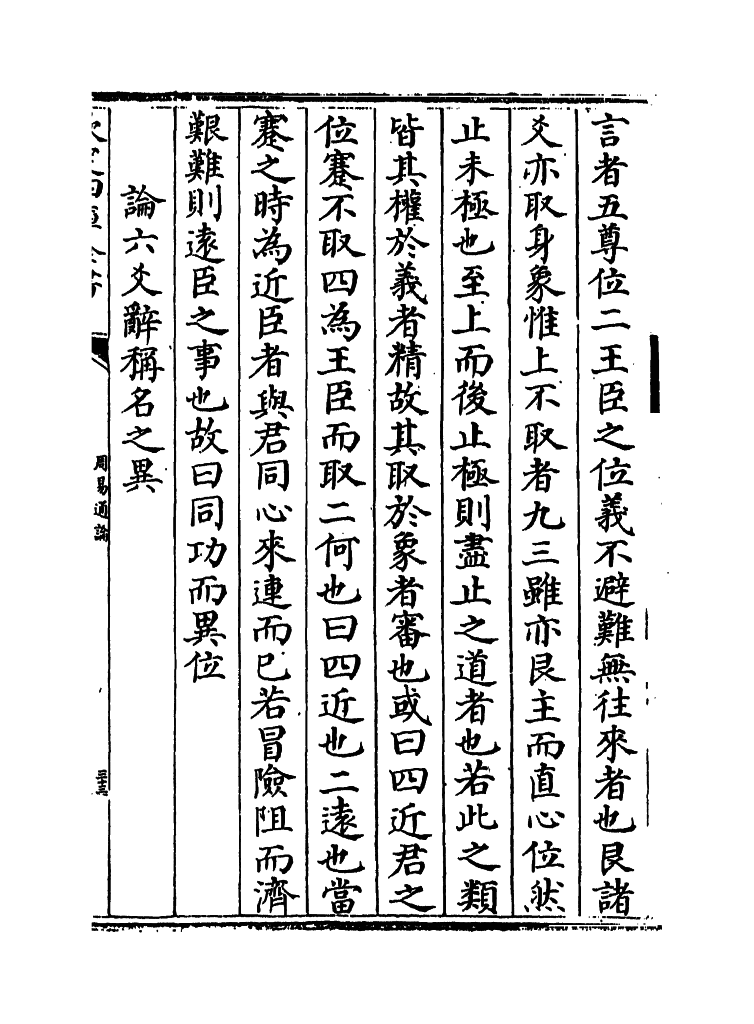 言者五尊位二王臣之位義不避難無往來者也艮諸
爻亦取身象惟上不取者九三雖亦艮主而直心位然
止未極也至上而後止極則盡止之道者也若此之類
皆其權於義者精故其取於象者審也或曰四近君之
位蹇不取四為王臣而取二何也曰四近也二遠也當
蹇之時為近臣者與君同心來連而已若冒險阻而濟
艱難則遠臣之事也故曰同功而異位
論六爻辭稱名之異
周易通論